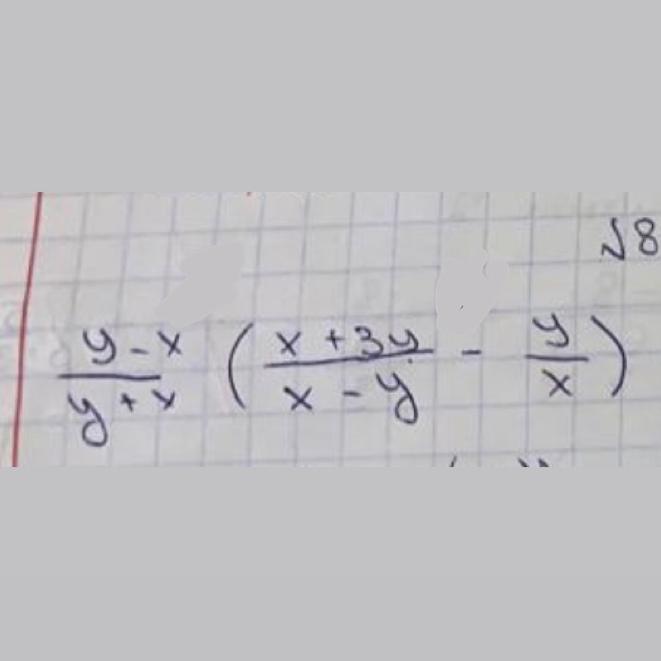 √8
y-x/y+x (x+3y/x-y - y/x)